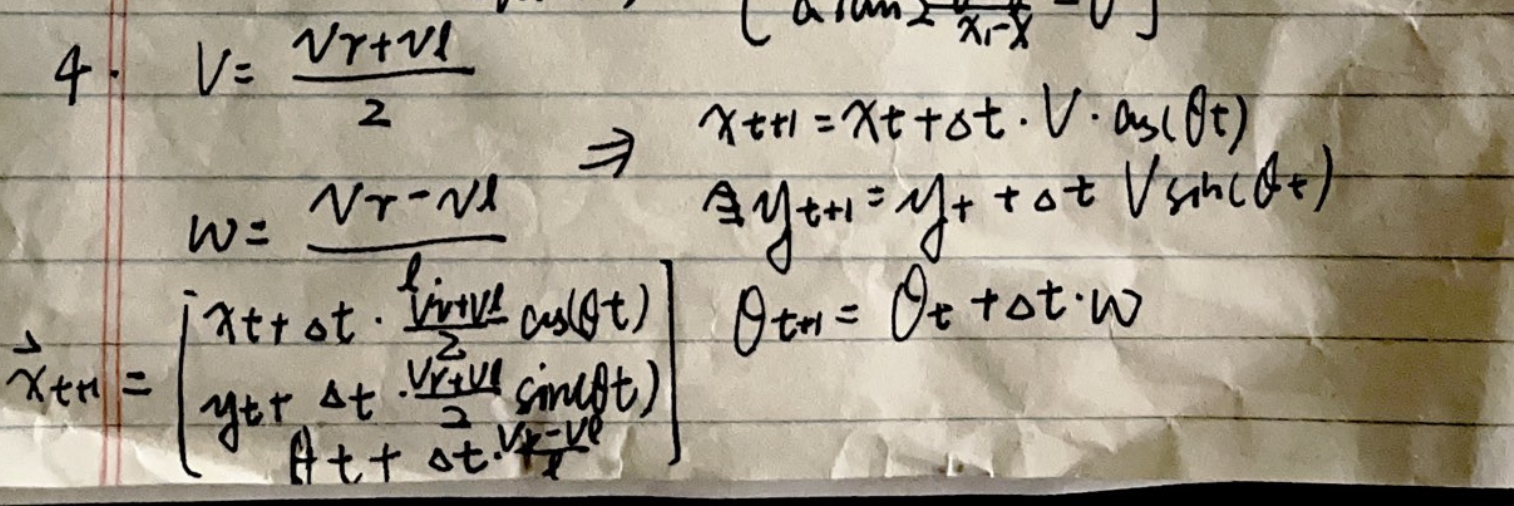 [ atan2 \frac{}{x_1-x} - θ ]
4. V = \frac{v_r+v_l}{2}
⇒ x_{t+1} = x_t + Δt · V · cos(θt)
y_{t+1} = y_t + Δt V sin(θt)
w = \frac{v_r-v_l}{l}
θ_{t+1} = θ_t + Δt · w
\vec{x}_{t+1} = [ x_t + Δt · \frac{v_r+v_l}{2} cos(θt)
y_t + Δt · \frac{v_r+v_l}{2} sin(θt)
θ_t + Δt · \frac{v_r-v_l}{l} ]